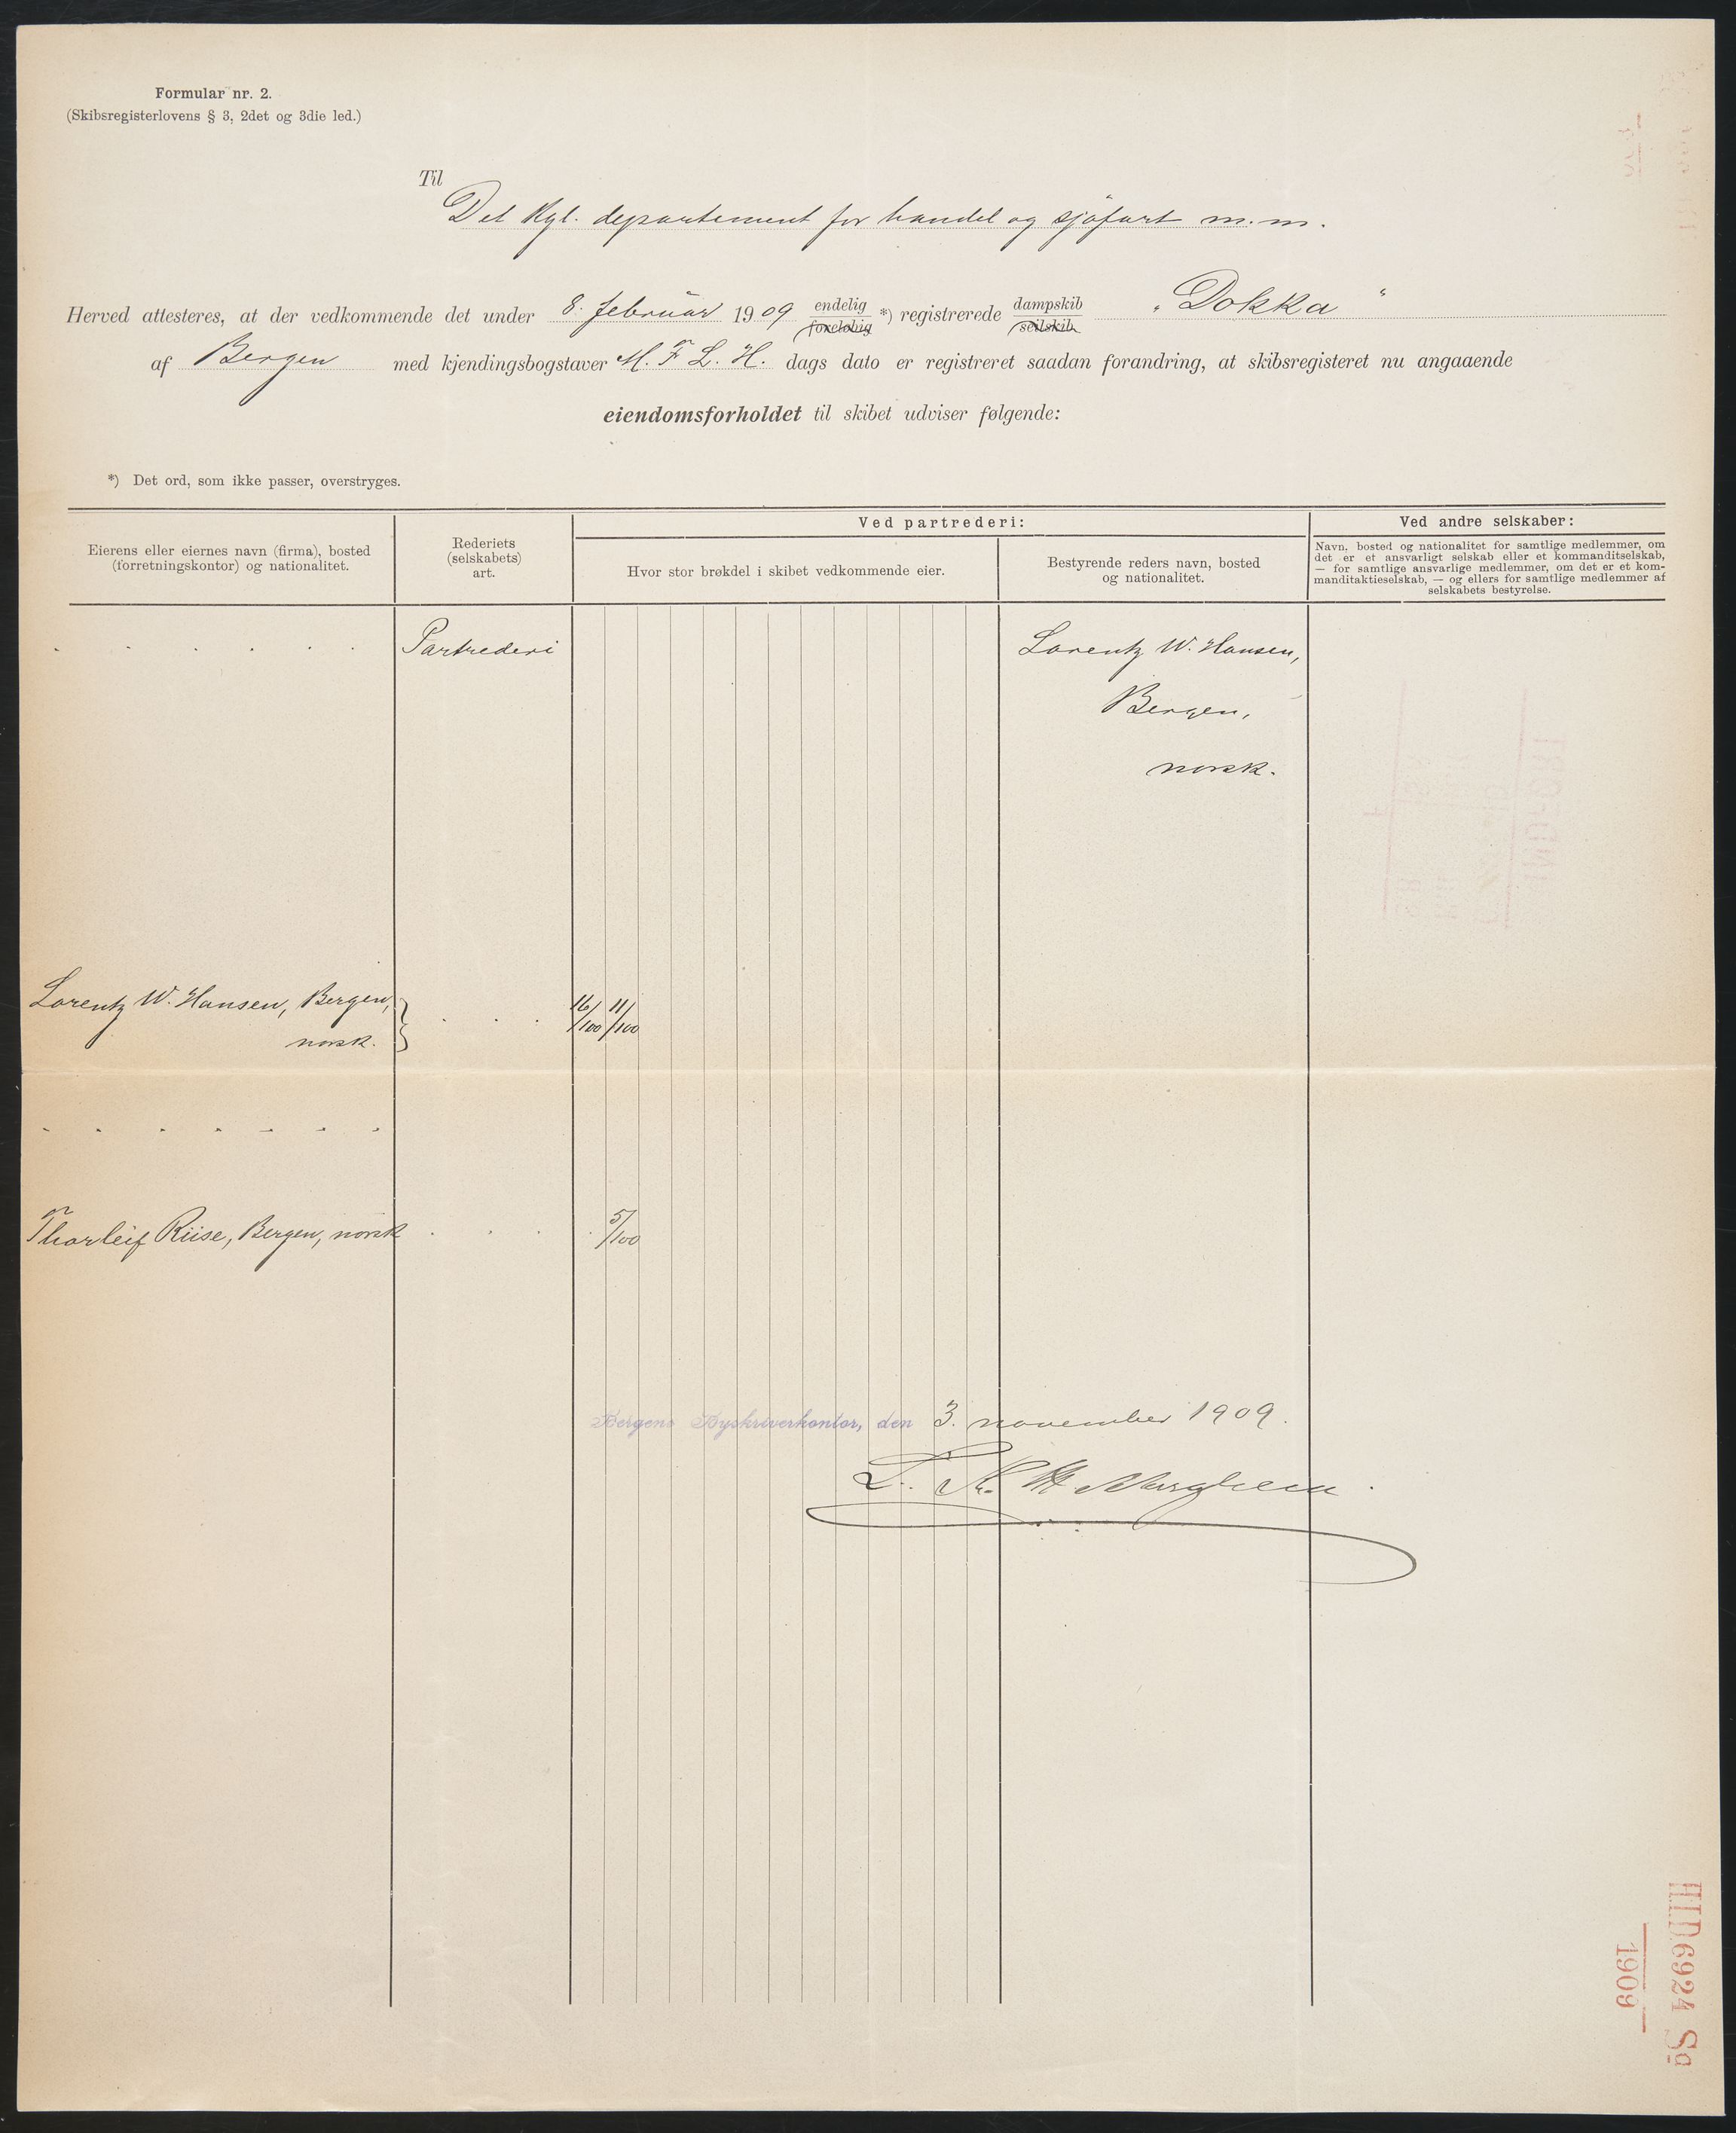 Formular nr. 2.
(Skibsregisterlovens § 3, 2det og 3die led.)
Til
Det Kgl. departement for handel og sjöfart m. m.
Herved attesteres, at der vedkommende det under 8. februar 1909 endelig foreløbig *) registrerede dampskib seilskib „Dokka“
af Bergen med kjendingsbogstaver M. F. L. H. dags dato er registreret saadan forandring, at skibsregisteret nu angaaende
eiendomsforholdet til skibet udviser følgende:
*) Det ord, som ikke passer, overstryges.
Eierens eller eiernes navn (firma), bosted
(forretningskontor) og nationalitet.
Rederiets
(selskabets)
art.
Ved partrederi:
Hvor stor brøkdel i skibet vedkommende eier.
Bestyrende reders navn, bosted
og nationalitet.
Ved andre selskaber:
Navn, bosted og nationalitet for samtlige medlemmer, om
det er et ansvarligt selskab eller et kommanditselskab,
— for samtlige ansvarlige medlemmer, om det er et kom-
manditaktieselskab, — og ellers for samtlige medlemmer af
selskabets bestyrelse.
Partrederi
Lorentz W. Hansen,
Bergen,
norsk.
Lorentz W. Hansen, Bergen,
norsk.
16/100 11/100
Thorleif Riise, Bergen, norsk
5/100
Bergens Byskriverkontor, den 3. november 1909.
H.I.D 6924 Sø
1909